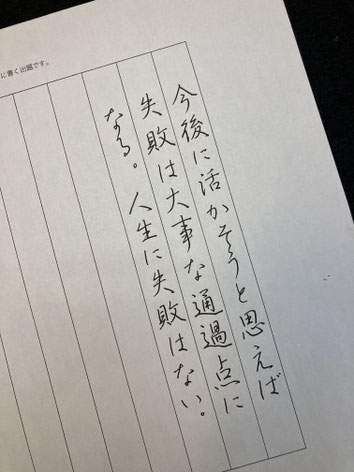 に書く出題です。
今後に活かそうと思えば
失敗は大事な通過点に
なる。人生に失敗はない。